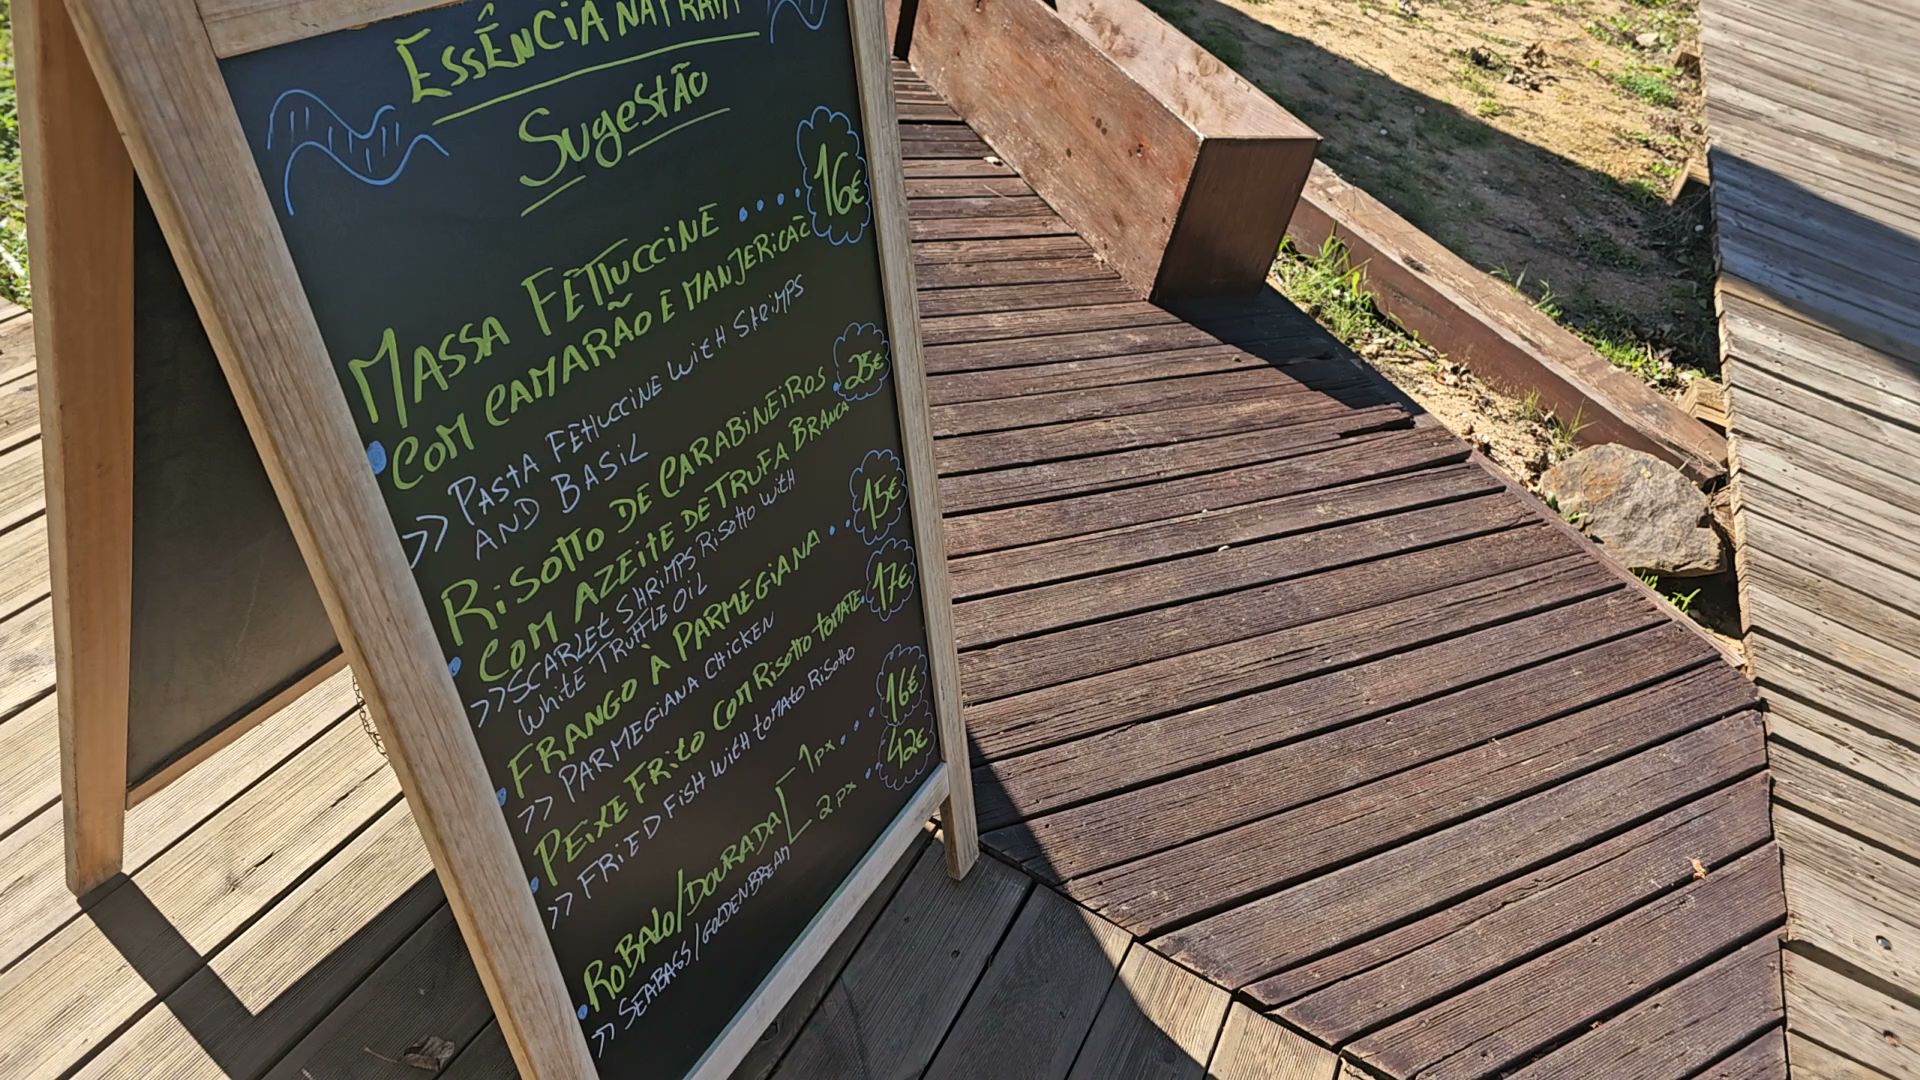 ESSÊNCIA
SugestÃO
MASSA FETTUCCINE .... 16€
COM CAMARÃO E MANJERICÃO
>> PASTA FETTUCCINE WITH SHRIMPS
AND BASIL
RISOTTO DE CARABINEIROS . 25€
COM AZEITE DE TRUFA BRANCA
>> SCARLET SHRIMPS RISOTTO WITH
WHITE TRUFFLE OIL
FRANGO À PARMEGIANA .. 15€
>> PARMEGIANA CHICKEN
PEIXE FRITO COM RISOTTO TOMATE. 17€
>> FRIED FISH WITH TOMATO RISOTTO
ROBALO/DOURADA [ 1px .. 16€
2px . 42€
>> SEABASS/GOLDENBREAM